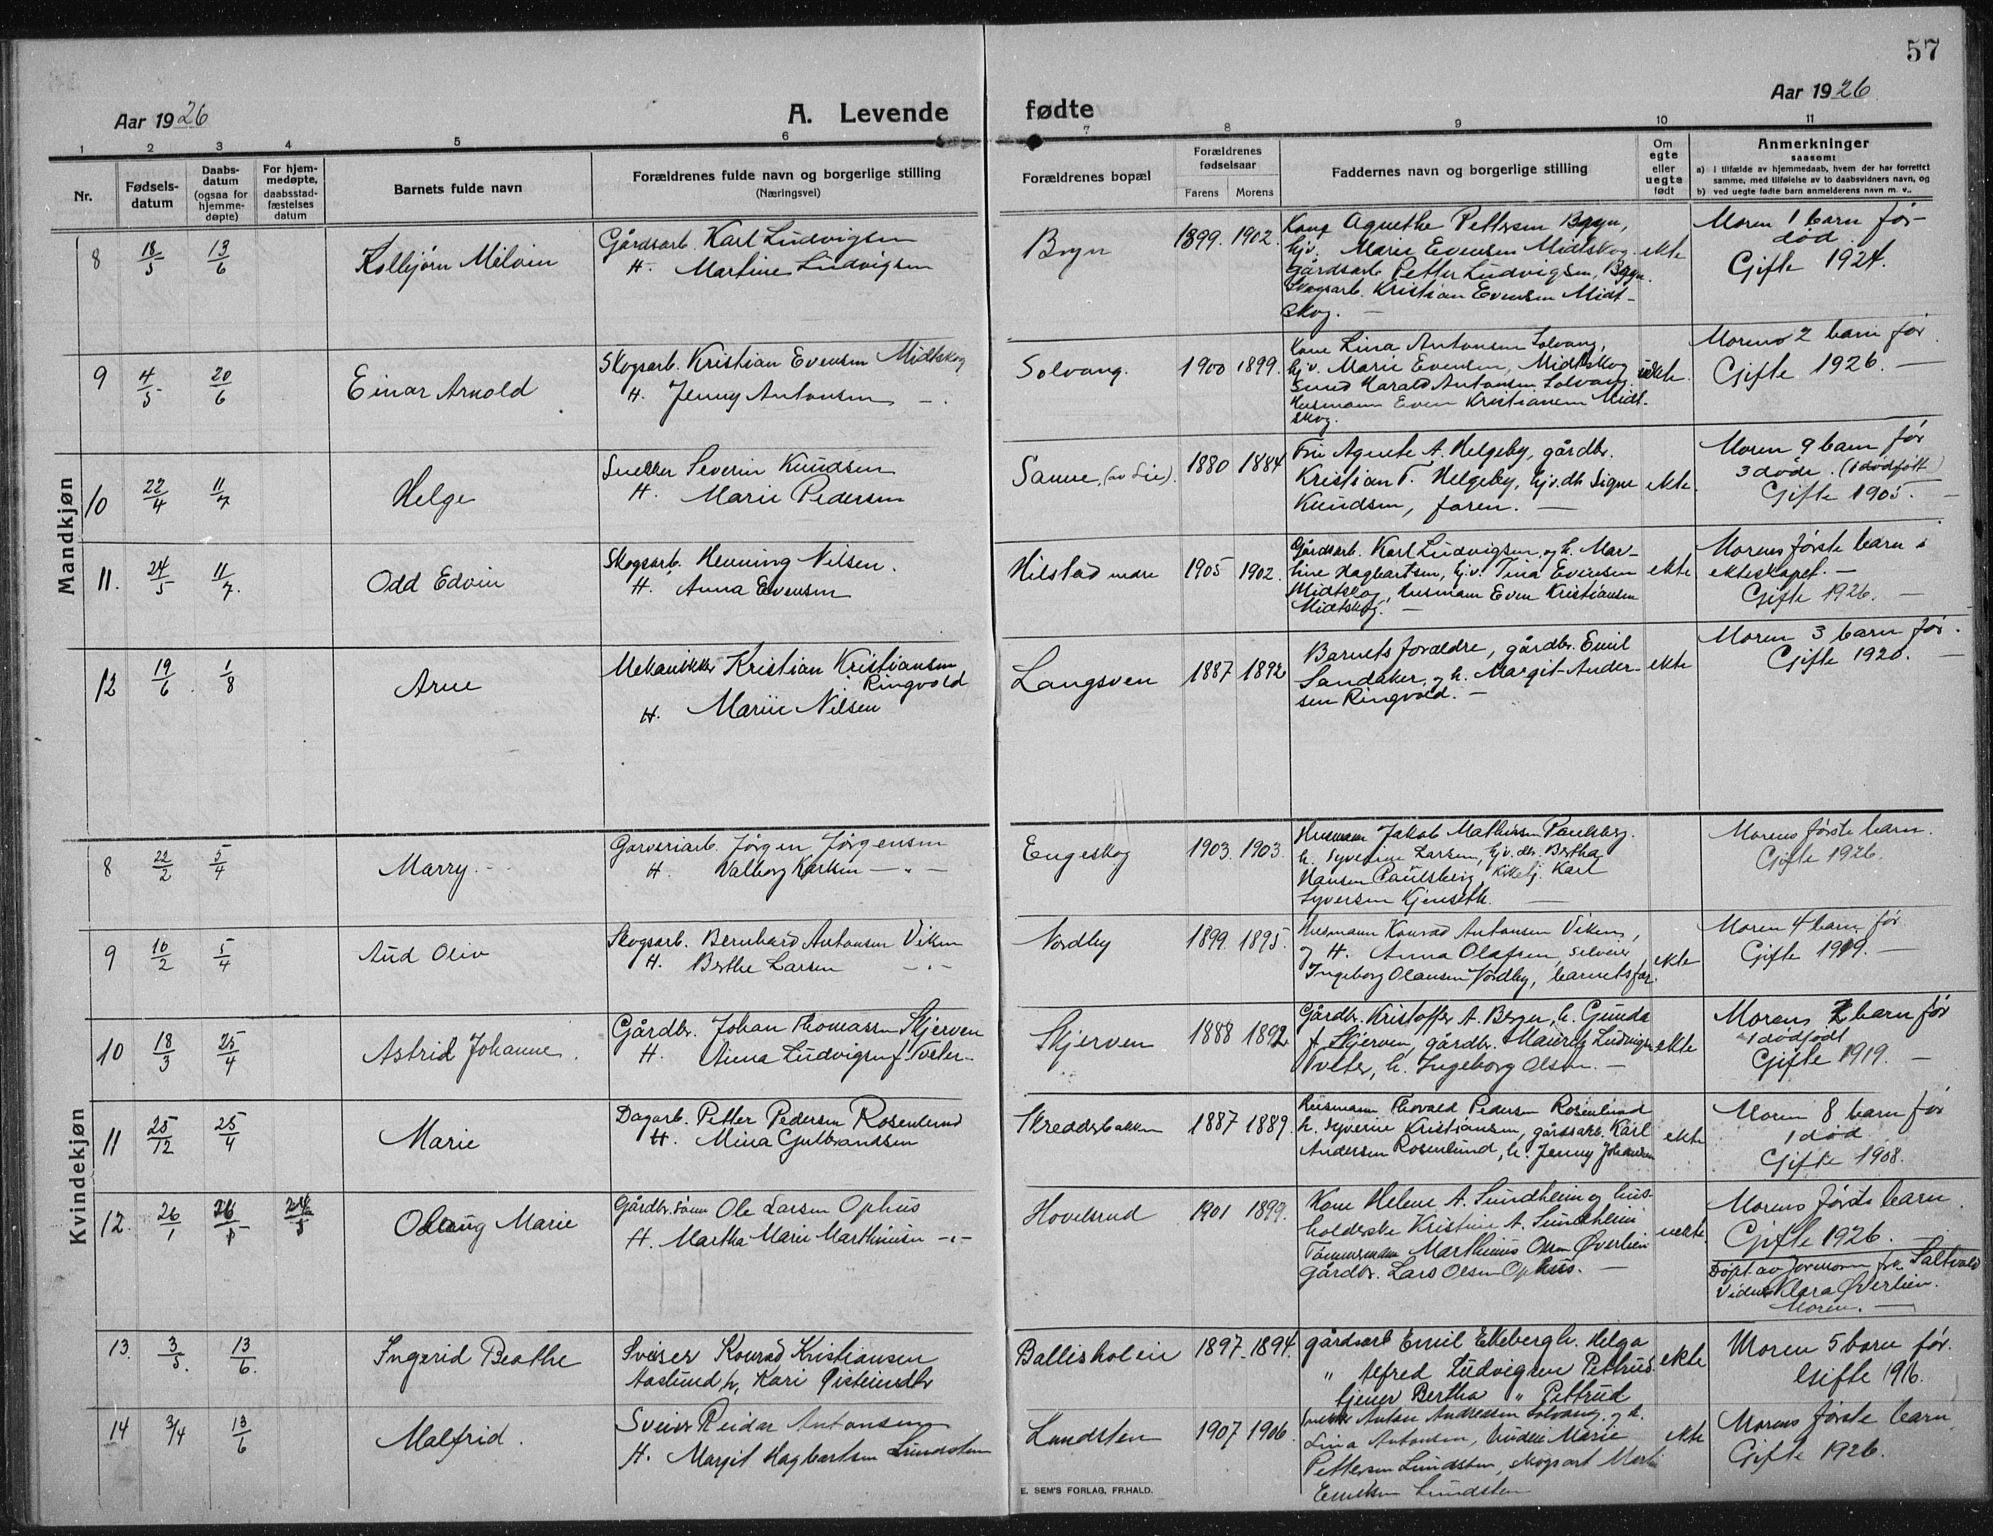 57
Aar 1926
A. Levende fødte
Aar 1926
1 2 3 4 5 6 7 8 9 10 11
Nr.
Fødsels-
datum
Daabs-
datum
(ogsaa for
hjemme-
døpte)
For hjem-
medøpte,
daabsstad-
fæstelses
datum
Barnets fulde navn
Forældrenes fulde navn og borgerlige stilling
(Næringsvei)
Forældrenes bopæl
Forældrenes
fødselsaar
Farens Morens
Faddernes navn og borgerlige stilling
Om
egte
eller
uegte
født
Anmerkninger
saasom:
a) i tilfælde av hjemmedaab, hvem der har forrettet
samme, med tilføielse av to daabsvidners navn, og
b) ved uegte fødte barn anmelderens navn m. v..
Mandkjøn
8 18/5 13/6 Kolbjørn Melvin
Gårdsarb. Karl Ludvigsen
H. Martine Ludvigsen
Bryn 1899. 1902.
Kone Agnethe Pettersen Bryn,
hjv. Marie Evensen Midtskog
Gårdsarb. Petter Ludvigsen, Bryn.
Skogsarb. Kristian Evensen Midt-
skog. —
ekte
Moren 1 barn før
død
Gifte 1924.
9 4/5 20/6 Einar Arnold
Skogsarb. Kristian Evensen Midtskog
H. Jenny Antonsen
Solvang. 1900 1899.
Kone Lina Antonsen Solvang,
hjv. Marie Evensen, Midtskog
Harald Antonsen Solvang.
Husmann Even Kristiansen Midt-
skog.
uekte.
Morens 2 barn før
Gifte 1926. —
10 22/4 11/7 Helge
Snekker Severin Knudsen
H. Marie Pedersen
1880 1884
Fru Agnete A. Helgeby, gårdbr.
Kristian T. Helgeby, hjv. dtr Signe
Knudsen, faren. —
ekte
Moren 9 barn før
3 døde. (1 dødfødt)
Gifte 1905. —
11. 24/5 11/7. Odd Edvin
Skogsarb. Henning Nilsen.
H. Anna Evensen
Hilstad nedre 1905 1902.
Gårdsarb. Karl Ludvigsen, og h. Mar-
tine Hagbartsen, hjv. Tina Evensen
Midtskog, husmann Even Kristiansen
Midtskog. —
ekte
Morens første barn i
ekteskapet. —
Gifte 1926. —
12 19/6 1/8 Arne
Mekaniker Kristian Kristiansen
Ringvold
H. Marie Nilsen
Langsven 1887 1892
Barnets foreldre, gårdbr. Emil
Sandaker, og h. Margit Ander-
sen Ringvold. —
ekte
Moren 3 barn før.
Gifte 1920. —
Kvindekjøn
8 22/2 5/4 Marry. —
Garveriarb. Jørgen Jørgensen
H. Valborg Karlsen — " —
Engeskog 1903. 1903.
Husmann Jakob Mathisen Paulsberg.
h. Syverine Larsen, hjv. dtr. Bertha
Hansen Paulsberg, Karl
Syversen Kjenseth. —
Morens første barn.
Gifte 1926.
9 10/2 5/4 Aud Oliv
Skogsarb. Bernhard Antonsen Viken
H. Berthe Larsen — " —
Nordby 1899. 1895.
Husmann Konrad Antonsen Viken,
og H. Anna Olafsen,
Ingeborg Olausen Nordby, barnets far.
ekte
Moren 4 barn før
Gifte 1919. —
10 18/3 25/4 Astrid Johanne.
Gårdbr. Johan Thomassen Skjerven
H. Anna Ludvigsen f. Tveter -
Skjerven 1888 1892
Gårdbr. Kristoffer A. Berger, h. Gunda
f. Skjerven, gårdbr. Mauritz Ludvigsen
Tveter, h. Ingeborg Olsen. —
ekte
Morens 2 barn før
1 dødfødt
Gifte 1919. —
11 25/12 25/4 Marie
Dagarb. Petter Pedersen Rosenlund
H. Mina Gulbrandsen
Skredderbakken 1887 1889.
Husmann Thorvald Pedersen Rosenlund
h. Syverine Kristiansen, gårdsarb. Karl
Andersen Rosenlund, h. Jenny Johansen
ekte
Moren 8 barn før
1 død
Gifte 1908.
12. 26/1 Marie
Gårdbr. sønn Ole Larsen Ophus
H. Martha Marie Marthinsen - " -
Hovelsrud 1901 1899.
Kone Helene A. Sundheim og hus-
holderske Kristine A. Sundheim
Tømmermann Marthinus Olsen Øverlien
Gårdbr. Lars Olsen Ophus. —
uekte.
Morens første barn
Gifte 1926. —
Døpt av jormorn frk. Saltvold
Vidner Klara Øverlien.
Moren. —
13. 3/5. 13/6. Ingerid Beathe
Sveiser Konrad Kristiansen
Aaslund h. Kari Øisteinsdtr
Ballisholen 1897. 1894.
gårdsarb Emil Ekeberg h. Helga
" Alfred Ludvigsen Pettrud
tjener Bertha " Pettrud
ekte
Moren 5 barn før.
Gifte 1916.
14 3/4 13/6 Malfrid.
Sveiser Reidar Antonsen
H. Margit Hagbartsen Lundsten
Lundsten 1907 1906.
Snekker Anton Andreassen Solvang, og h.
Lina Antonsen, Marie
Pettersen Lundsten, skogsarb Martin
Lundsten
ekte
Morens første barn
Gifte 1926.
E. SEM'S FORLAG, FR.HALD.